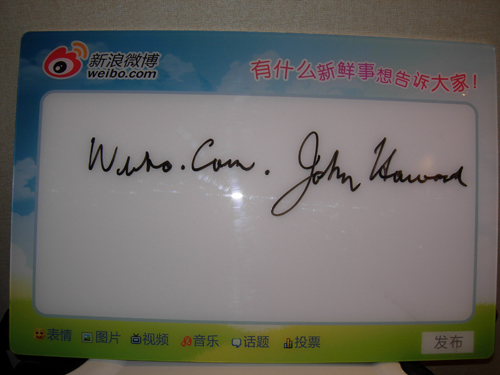 新浪微博
weibo.com
有什么新鲜事想告诉大家!
Weibo.Com. John Howard
表情 图片 视频 音乐 话题 投票 发布